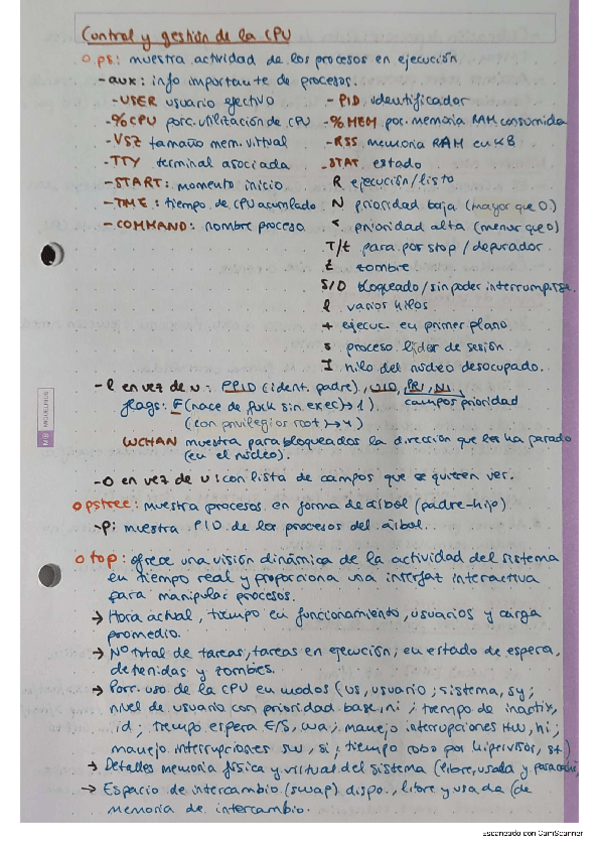 Control y gestión de la CPU
o ps: muestra actividad de los procesos en ejecución.
-aux: info importante de procesos.
-USER usuario efectivo - PID identificador
-%CPU porc. utilización de CPU -%MEM por. memoria RAM consumida
-VSZ tamaño mem. virtual -RSS memoria RAM en KB
-TTY terminal asociada -STAT estado
-START: momento inicio R ejecución/listo
-TIME: tiempo de CPU acumulado N prioridad baja (mayor que 0)
-COMMAND: nombre proceso < prioridad alta (menor que 0)
T/t para por stop / depurador
Z zombie
S/D bloqueado / sin poder interrumpirse.
l varios hilos
+ ejecuc. en primer plano
s proceso líder de sesión
I hilo del núcleo desocupado.
-l en vez de u: PPID (ident. padre), UID, PRI, NI,
flags: F (nace de fork sin exec)→1) campos prioridad
(con privilegios root →4)
WCHAN muestra para bloqueados la dirección que les ha parado
(en el núcleo).
-o en vez de u: con lista de campos que se quieren ver.
o pstree: muestra procesos en forma de árbol (padre-hijo)
-p: muestra PID de los procesos del árbol.
o top: ofrece una visión dinámica de la actividad del sistema
en tiempo real y proporciona una interfaz interactiva
para manipular procesos.
→ Hora actual, tiempo en funcionamiento, usuarios y carga
promedio.
→ Nº total de tareas, tareas en ejecución; en estado de espera,
detenidas y zombies.
→ Porc. uso de la CPU en modos (us, usuario; sistema, sy;
nivel de usuario con prioridad base, ni; tiempo de inactiv,
id; tiempo espera E/S, wa; manejo interrupciones HW, hi;
manejo interrupciones sw, si; tiempo robo por hipervisor, st)
→ Detalles memoria física y virtual del sistema (libre, usada y para
→ Espacio de intercambio (swap) dispo., libre y usada (de
memoria de intercambio.
MIQUELRIUS
Escaneado con CamScanner